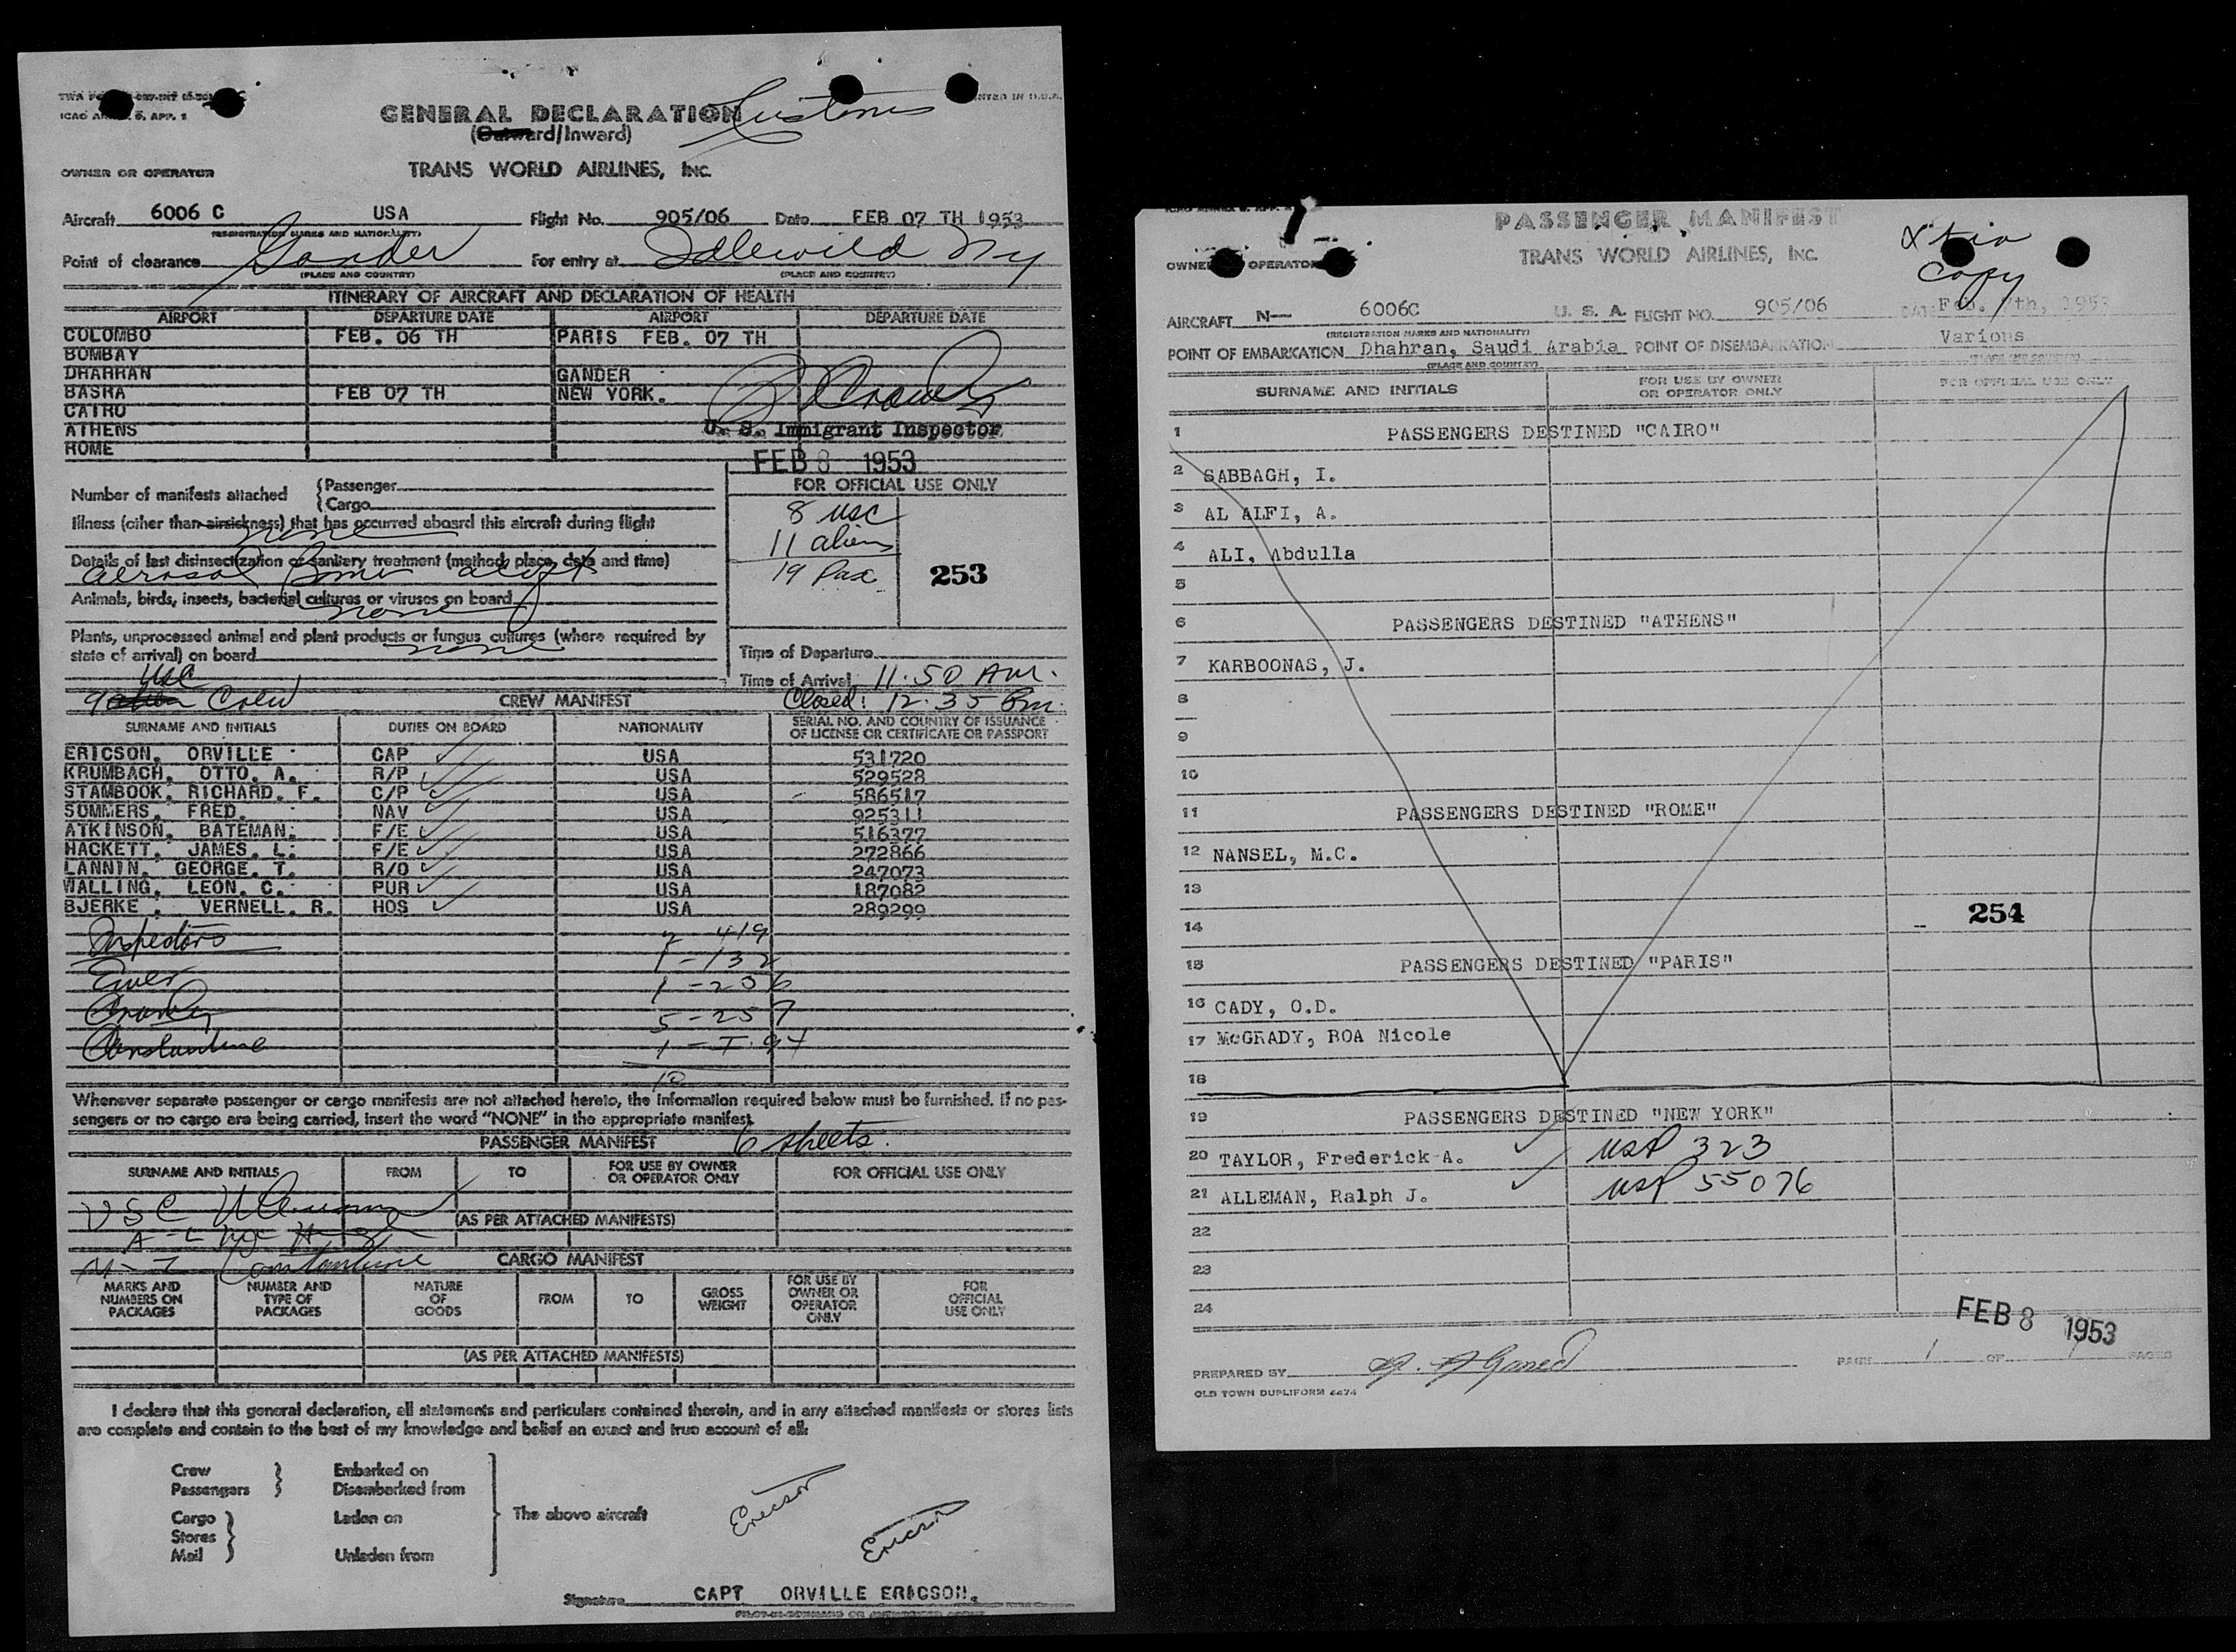 ICAO
6, APP. 1
GENERAL DECLARATION
Customs
(Outward/Inward)
OWNER OR OPERATOR
TRANS WORLD AIRLINES, INC.
Aircraft 6006 C USA Flight No. 905/06 Date FEB 07 TH 1953
(REGISTRATION MARKS AND NATIONALITY)
Point of clearance Gander For entry at Idlewild Ny
(PLACE AND COUNTRY) (PLACE AND COUNTRY)
ITINERARY OF AIRCRAFT AND DECLARATION OF HEALTH
AIRPORT DEPARTURE DATE AIRPORT DEPARTURE DATE
COLOMBO FEB. 06 TH PARIS FEB. 07 TH
BOMBAY
DHAHRAN GANDER
BASRA FEB 07 TH NEW YORK.
CAIRO
ATHENS U. S. Immigrant Inspector
ROME
FEB 8 1953
Number of manifests attached {Passenger
{Cargo
FOR OFFICIAL USE ONLY
Illness (other than airsickness) that has occurred aboard this aircraft during flight
none
8 usc
11 aliens
19 Pax
253
Details of last disinsectization or sanitary treatment (method, place, date and time)
aerosol Bomb
Animals, birds, insects, bacterial cultures or viruses on board
none
Plants, unprocessed animal and plant products or fungus cultures (where required by
state of arrival) on board none
Time of Departure
Time of Arrival 11.50 Am.
Closed: 12.35 Pm.
9 USC Crew
CREW MANIFEST
SURNAME AND INITIALS DUTIES ON BOARD NATIONALITY SERIAL NO. AND COUNTRY OF ISSUANCE
OF LICENSE OR CERTIFICATE OR PASSPORT
ERICSON, ORVILLE CAP USA 531720
KRUMBACH, OTTO. A. R/P USA 529528
STAMBOOK, RICHARD. F. C/P USA 586517
SOMMERS, FRED. NAV USA 925311
ATKINSON, BATEMAN. F/E USA 516377
HACKETT, JAMES. L. F/E USA 272866
LANNIN, GEORGE. T. R/O USA 247073
WALLING, LEON. C. PUR USA 187082
BJERKE, VERNELL. R. HOS USA 289299
Inspectors 2 - 419
1 - 132
1 - 256
5 - 257
Constantine 1 - I. 94
10
Whenever separate passenger or cargo manifests are not attached hereto, the information required below must be furnished. If no pas-
sengers or no cargo are being carried, insert the word "NONE" in the appropriate manifest.
PASSENGER MANIFEST 6 sheets.
SURNAME AND INITIALS FROM TO FOR USE BY OWNER
OR OPERATOR ONLY FOR OFFICIAL USE ONLY
(AS PER ATTACHED MANIFESTS)
Constantine
CARGO MANIFEST
MARKS AND
NUMBERS ON
PACKAGES NUMBER AND
TYPE OF
PACKAGES NATURE
OF
GOODS FROM TO GROSS
WEIGHT FOR USE BY
OWNER OR
OPERATOR
ONLY FOR
OFFICIAL
USE ONLY
(AS PER ATTACHED MANIFESTS)
I declare that this general declaration, all statements and particulars contained therein, and in any attached manifests or stores lists
are complete and contain to the best of my knowledge and belief an exact and true account of all:
Crew Embarked on
Passengers Disembarked from
Cargo Laden on The above aircraft
Stores
Mail Unladen from
Ericson
Ericson
Signature CAPT ORVILLE ERICSON.
PASSENGER MANIFEST
OWNER OPERATOR TRANS WORLD AIRLINES, INC.
Copy
AIRCRAFT N— 6006C U. S. A. FLIGHT NO. 905/06 DATE Feb. 7th, 1953
(REGISTRATION MARKS AND NATIONALITY)
POINT OF EMBARKATION Dhahran, Saudi Arabia POINT OF DISEMBARKATION Various
(PLACE AND COUNTRY) (PLACE AND COUNTRY)
SURNAME AND INITIALS FOR USE BY OWNER
OR OPERATOR ONLY FOR OFFICIAL USE ONLY
1 PASSENGERS DESTINED "CAIRO"
2 SABBAGH, I.
3 AL ALFI, A.
4 ALI, Abdulla
5
6 PASSENGERS DESTINED "ATHENS"
7 KARBOONAS, J.
8
9
10
11 PASSENGERS DESTINED "ROME"
12 NANSEL, M.C.
13
254
14
15 PASSENGERS DESTINED "PARIS"
16 CADY, O.D.
17 McGRADY, ROA Nicole
18
19 PASSENGERS DESTINED "NEW YORK"
20 TAYLOR, Frederick A. USP 323
21 ALLEMAN, Ralph J. USP 55076
22
23
24
FEB 8 1953
PREPARED BY PAGE 1 OF PAGES
OLD TOWN DUPLIFORM 6474